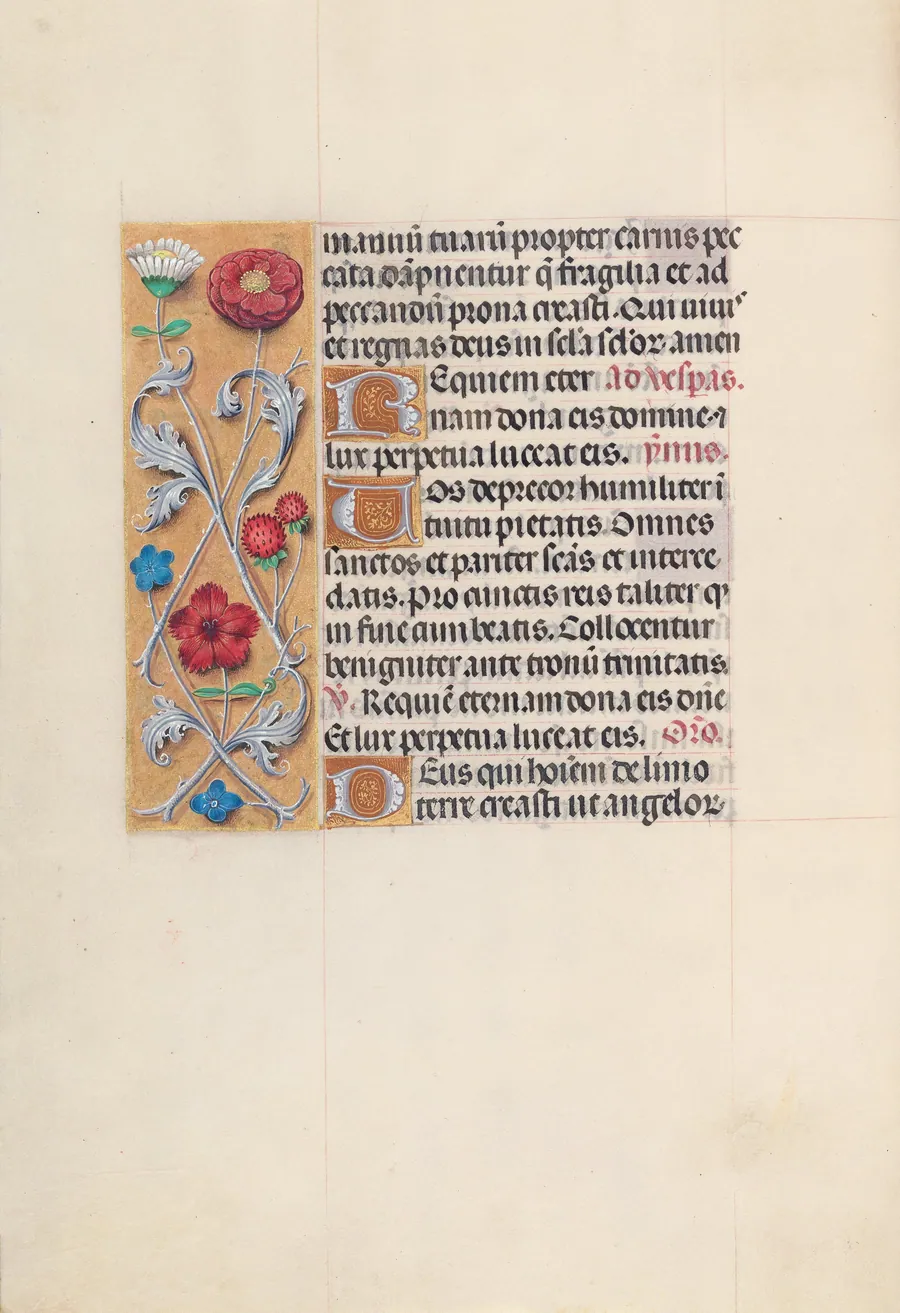 manuū tuarū propter carnis pec
cata dāpnentur q̄ fragilia et ad
peccandū prona creasti. Qui viuis
et regnas deus in scl̄a sclōꝝ amen
Equiem eter Ad vespas.
nam dona eis domine ⁊
lux perpetua luceat eis. ym̄is.
Uos deprecor humiliter ī
tuitu pietatis Omnes
sanctos et pariter scās et interce
datis. pro cunctis reis taliter qͥ
in fine cum beatis. Collocentur
benigniter ante tronū trinitatis
V̄. Requiē eternam dona eis dn̄e
Et lux perpetua luceat eis. Orō.
Deus qui hoīem de limo
terre creasti ut angeloꝝ